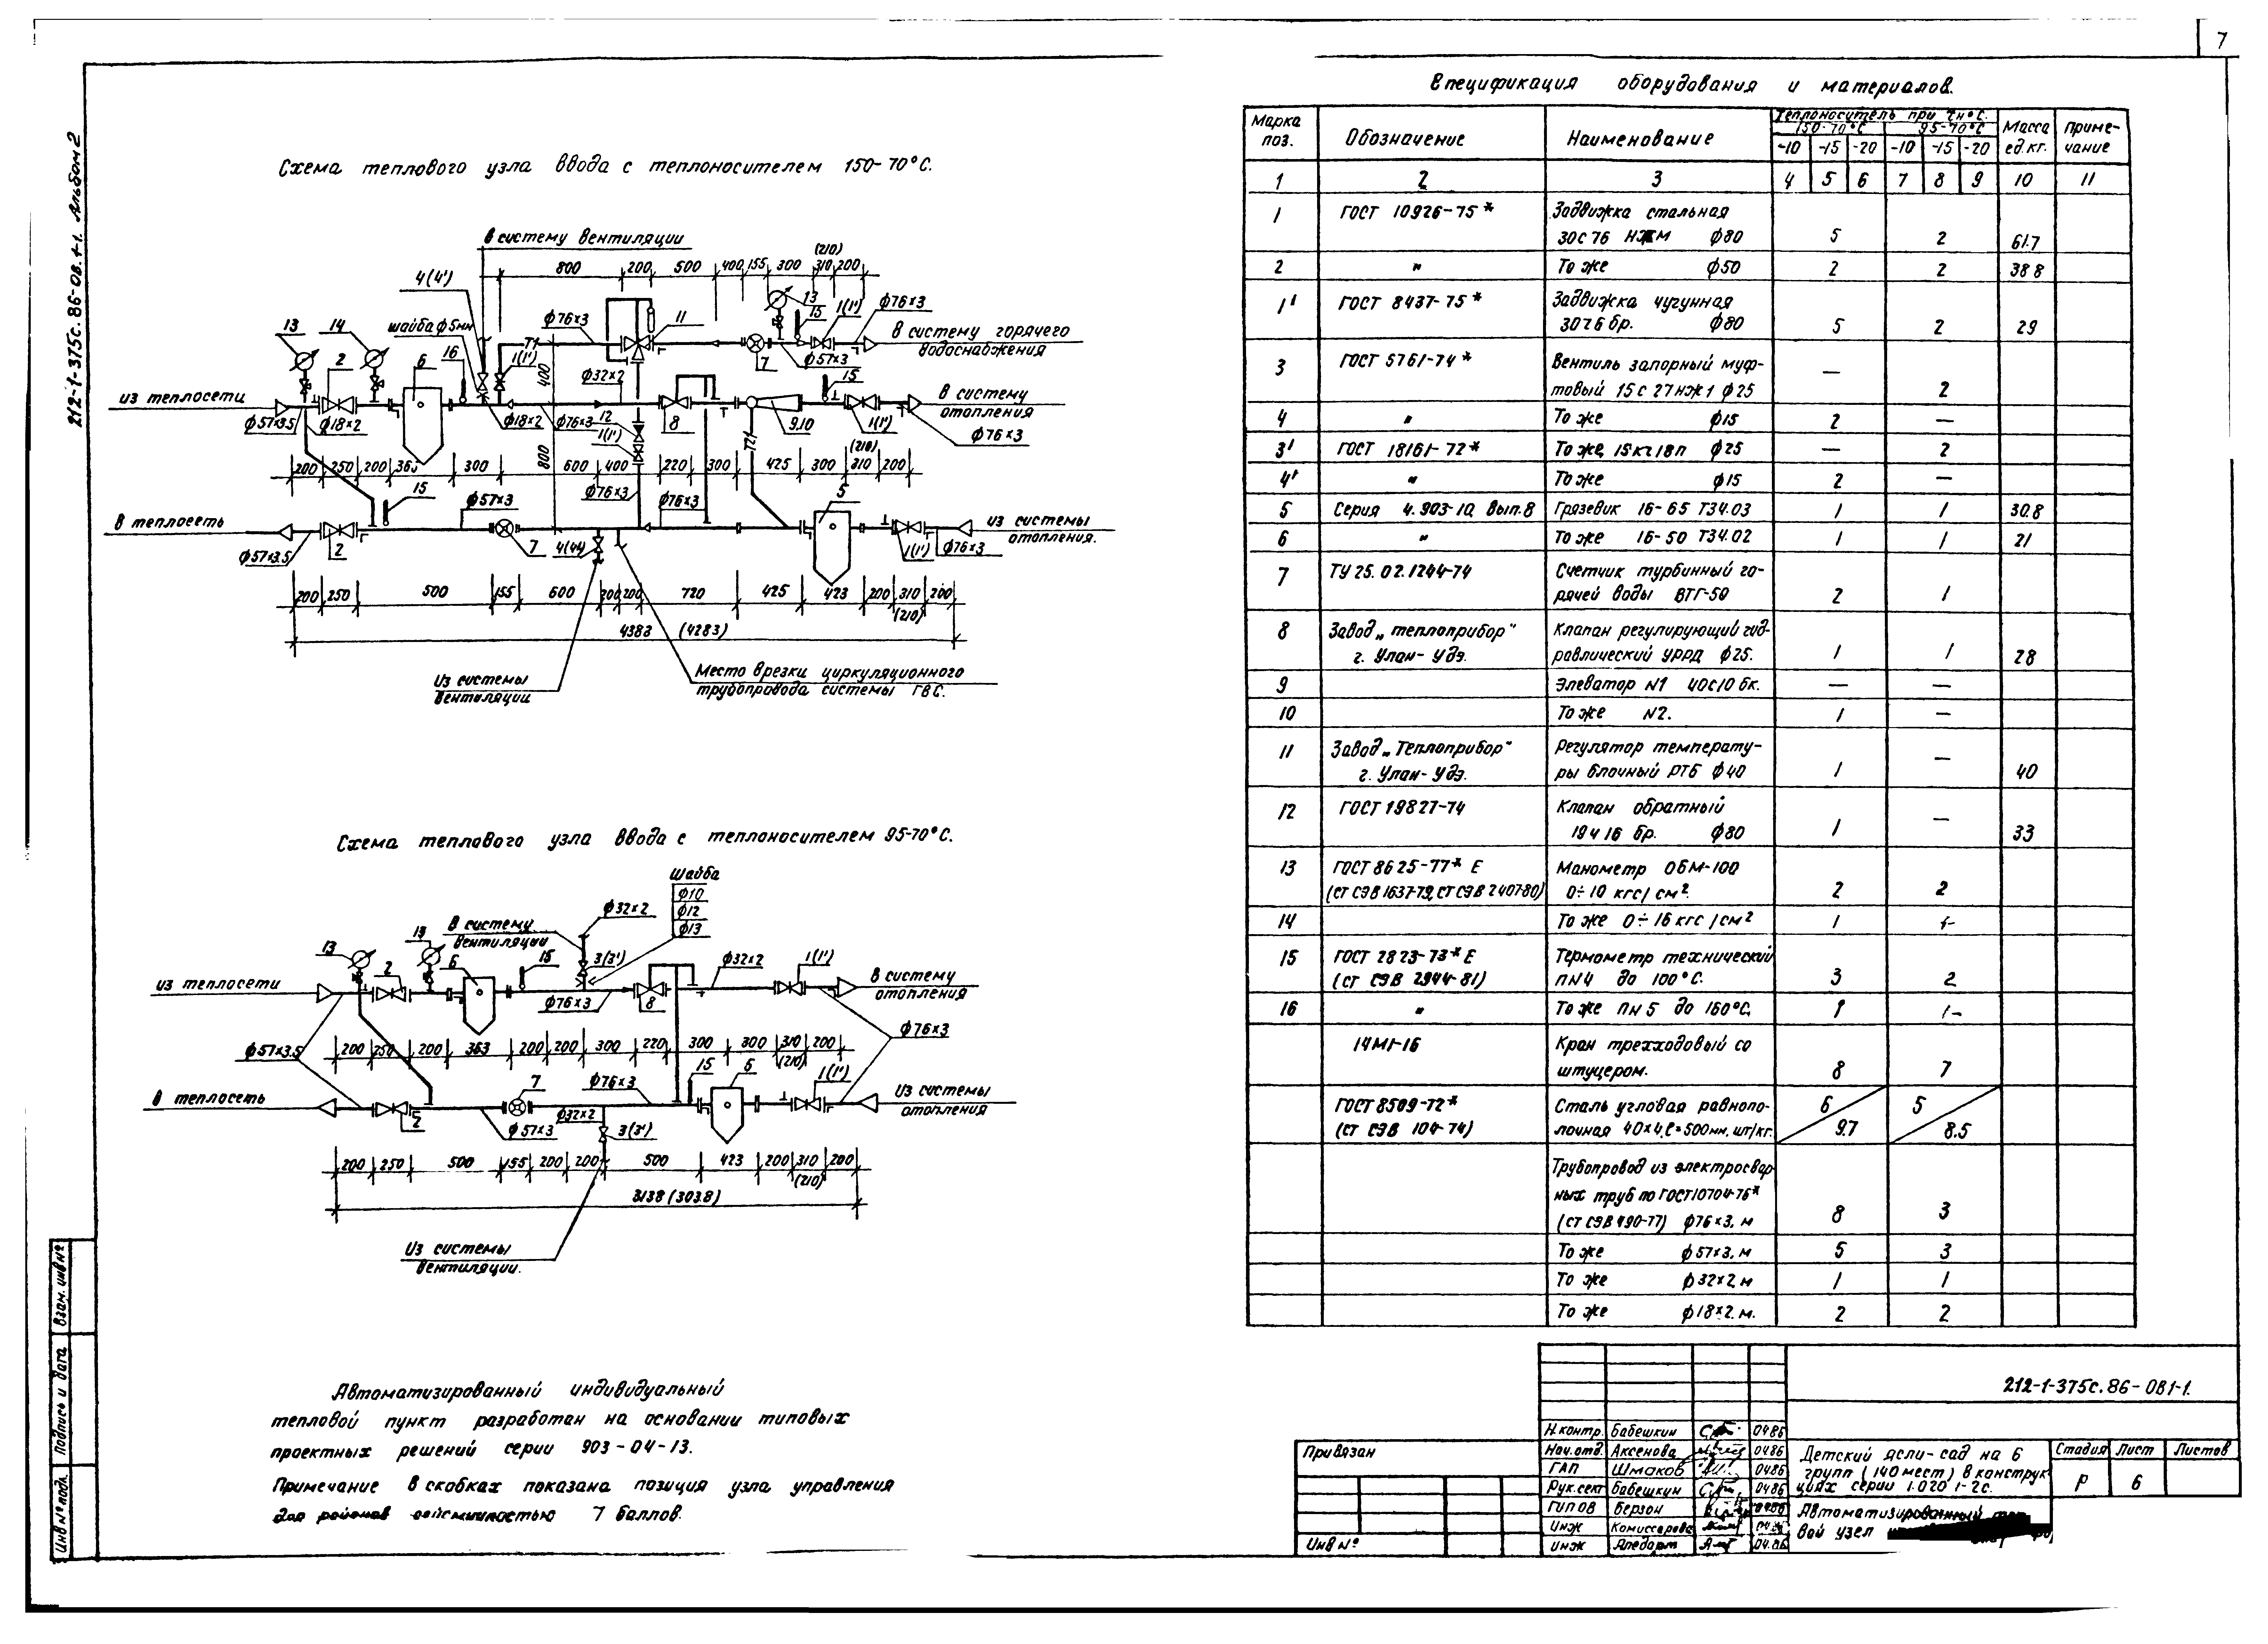 7
212-1-375с.86-ОВ.1-1. Альбом 2
Схема теплового узла ввода с теплоносителем 150-70°С.
В систему вентиляции
(210)
800 200 500 400 155 300 310 200
4(4')
13 14 2 6 16
шайба ф5мм
ф76×3 11 13 15 1(1') ф76×3
В систему горячего
водоснабжения
Т1 1(1') 400 7 ф57×3
ф32×2 15
из теплосети
В систему
отопления
ф57×3.5 ф18×2 ф18×2 ф76×3 12 1(1') 8 Т21 9.10 1(1') ф76×3
800
(210)
200 250 200 363 300 600 400 220 300 425 300 310 200
15 ф57×3 ф76×3 ф76×3 5
в теплосеть
из системы
отопления.
ф57×3.5 2 7 4(4') 1(1') ф76×3
200 250 500 155 600 200 200 720 425 423 200 310 200
(210)
4383 (4283)
Из системы
вентиляции
Место врезки циркуляционного
трубопровода системы ГВС.
Схема теплового узла ввода с теплоносителем 95-70°С.
Шайба
ф10
ф12
ф13
ф32×2
В систему
вентиляции
13 2 13 6 15 3(3') ф32×2 1(1')
из теплосети
В систему
отопления
ф76×3 8
ф57×3.5 ф76×3
200 250 200 363 200 200 300 220 300 300 310 200
(210)
7 ф76×3 15 5 1(1')
в теплосеть
Из системы
отопления
2 ф57×3 ф32×2 3(3')
200 250 500 155 200 200 500 423 200 310 200
(210)
3138 (3038)
Из системы
вентиляции.
Автоматизированный индивидуальный
тепловой пункт разработан на основании типовых
проектных решений серии 903-04-13.
Примечание в скобках показана позиция узла управления
для районов сейсмичностью 7 баллов.
Спецификация оборудования и материалов.
Марка поз. Обозначение Наименование Теплоноситель при tн°С. Масса ед.кг. Примечание
150-70°С 95-70°С
-10 -15 -20 -10 -15 -20
1 2 3 4 5 6 7 8 9 10 11
1 ГОСТ 10926-75* Задвижка стальная
30с76 нжм ф80 5 2 61.7
2 " То же ф50 2 2 38.8
1' ГОСТ 8437-75* Задвижка чугунная
30ч6бр. ф80 5 2 29
3 ГОСТ 5761-74* Вентиль запорный муф-
товый 15с27нж1 ф25 — 2
4 " То же ф15 2 —
3' ГОСТ 18161-72* То же, 15кч18п ф25 — 2
4' " То же ф15 2 —
5 Серия 4.903-10, Вып.8 Грязевик 16-65 Т34.03 1 1 30.8
6 " То же 16-50 Т34.02 1 1 21
7 ТУ 25.02.1244-74 Счетчик турбинный го-
рячей воды ВТГ-50 2 1
8 Завод „теплоприбор" Клапан регулирующий гид-
г. Улан-Удэ. равлический УРРД ф25. 1 1 28
9 Элеватор N1 40с10бк. — —
10 То же N2. 1 —
11 Завод „Теплоприбор" Регулятор температу-
г. Улан-Удэ. ры блочный РТБ ф40 1 — 40
12 ГОСТ 19827-74 Клапан обратный
19ч16бр. ф80 1 — 33
13 ГОСТ 8625-77* Е Манометр ОБМ-100
(СТ СЭВ 1637-79, СТ СЭВ 2407-80) 0÷10 кгс/см² 2 2
14 То же 0÷16 кгс/см² 1 1-
15 ГОСТ 2823-73* Е Термометр технический
(СТ СЭВ 2944-81) ПN4 до 100°С. 3 2
16 " То же ПN5 до 160°С. 1 1-
14М1-16 Кран трехходовый со
штуцером. 8 7
ГОСТ 8509-72* Сталь угловая равнопо- 6 5
(СТ СЭВ 104-74) лочная 40×4, ℓ=500мм, шт/кг. 9.7 8.5
Трубопровод из электросвар-
ных труб по ГОСТ 10704-76*
(СТ СЭВ 490-77) ф76×3, м 8 3
То же ф57×3, м 5 3
То же ф32×2 м 1 1
То же ф18×2. м. 2 2
212-1-375с.86-ОВ1-1.
Н.контр. Бабешкин 0486
Нач.отд. Аксенова 0486
ГАП Шмаков 0486
Рук.сект Бабешкин 0486
ГИП ОВ Берзон 0486
Инж Комиссарова 04.86
Инж Япедарт 04.86
Детский ясли-сад на 6
групп (140 мест) в конструк-
циях серии 1.020 1-2с.
Стадия Лист Листов
Р 6
Автоматизированный
вой узел
Привязан
Инв №
Взам. инв №
Подпись и дата
Инв № подл.